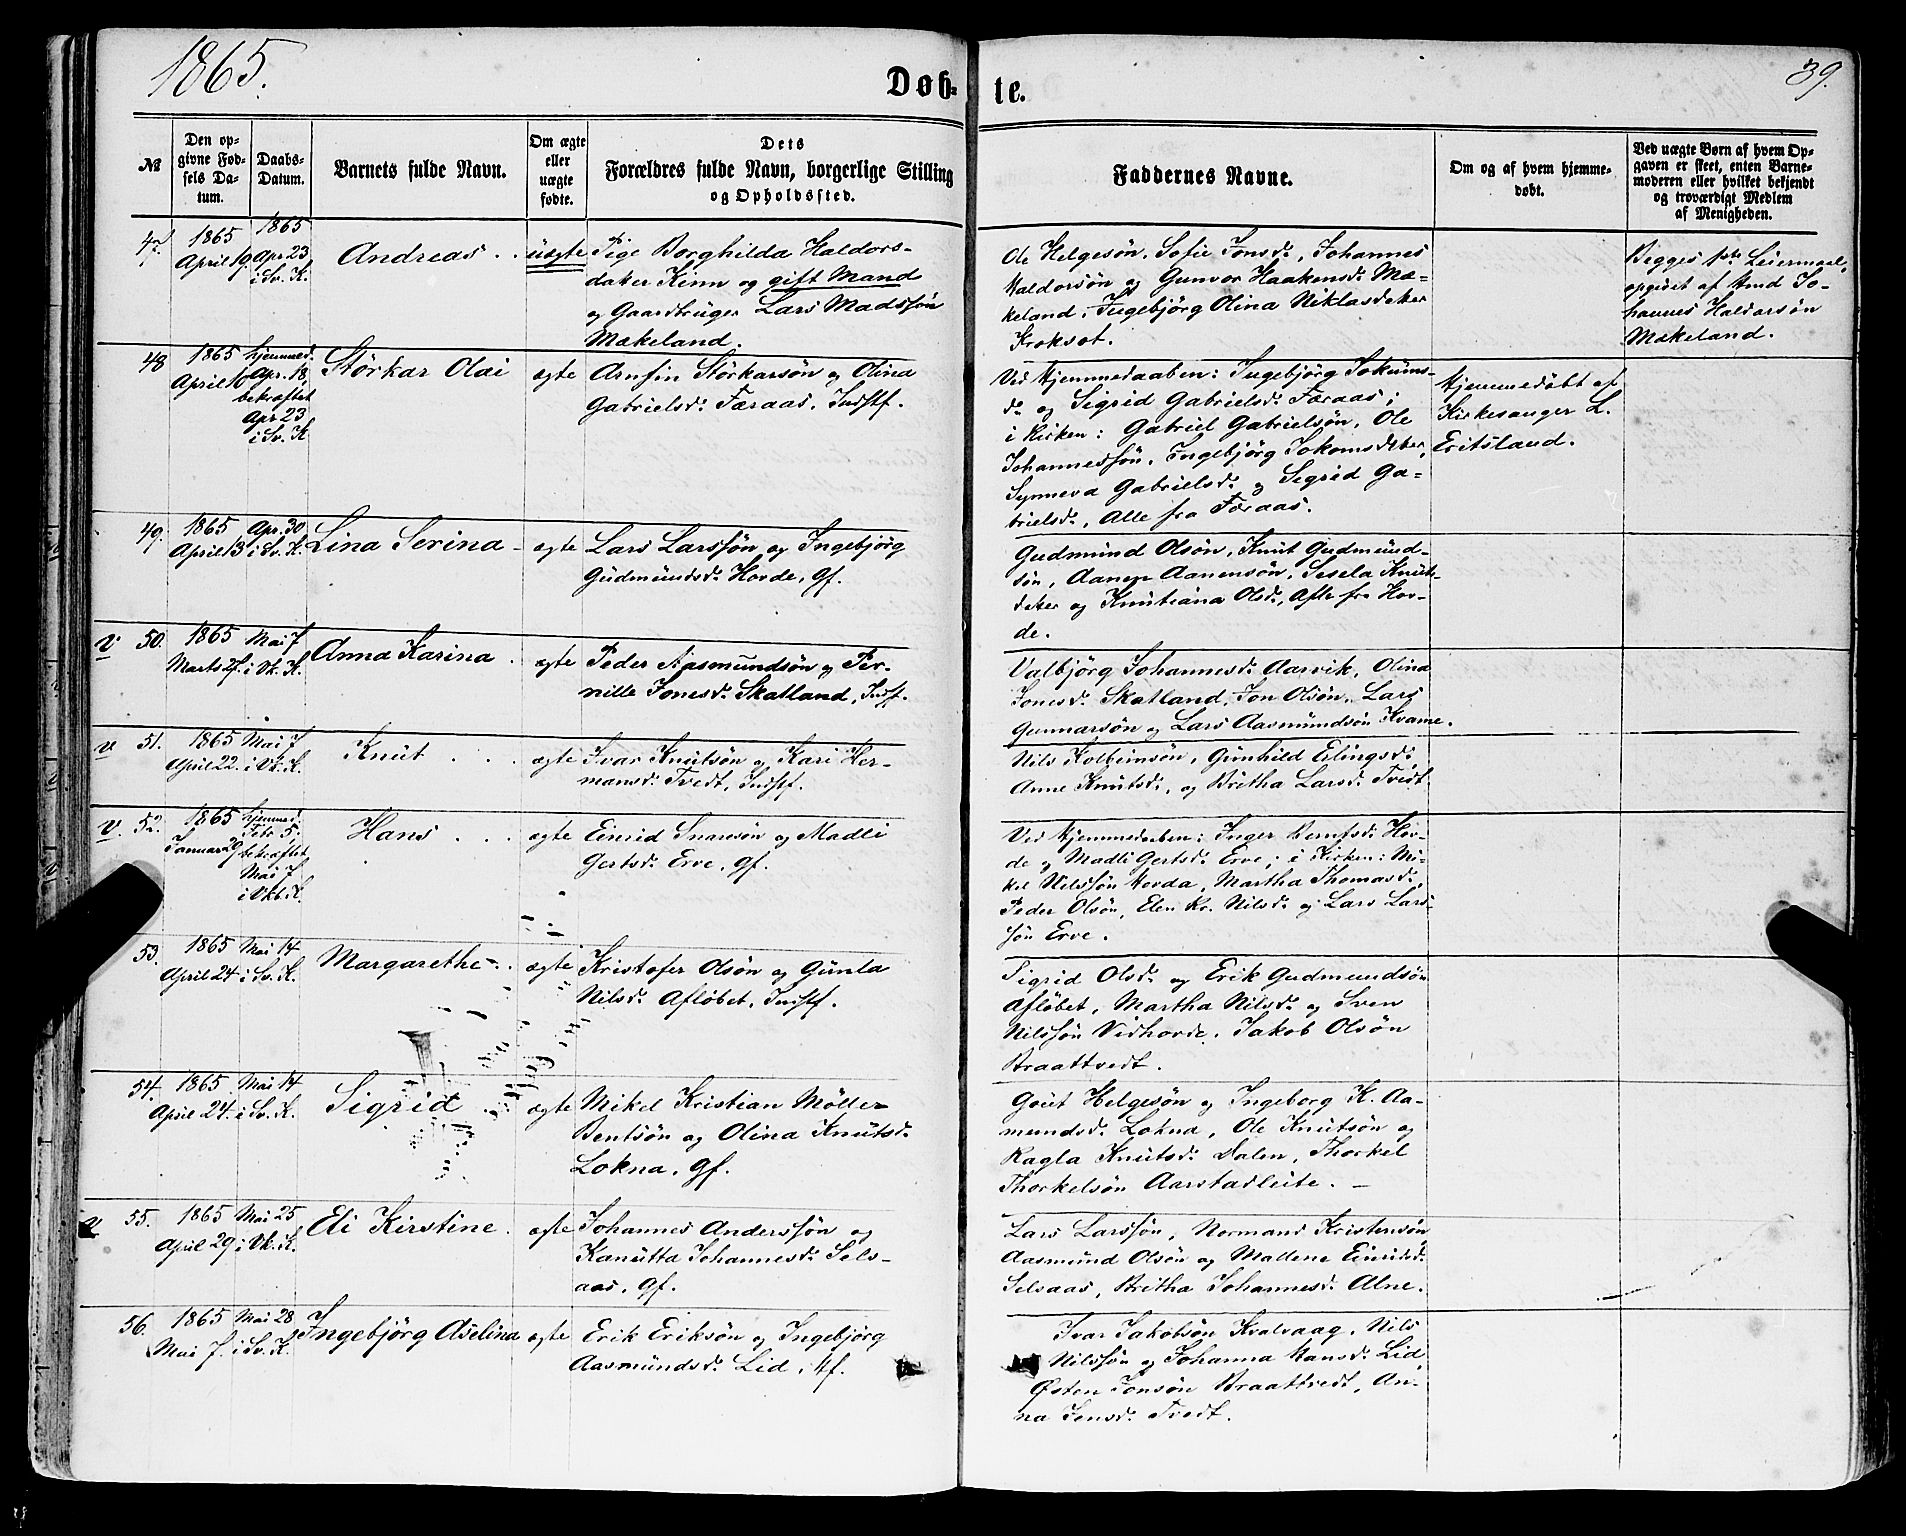 1865.
Døb-
te.
39.
№
Den op-
givne Fød-
sels Da-
tum.
Daabs-
Datum.
Barnets fulde Navn.
Om ægte
eller
uægte
fødte.
Dets
Forældres fulde Navn, borgerlige Stilling
og Opholdssted.
Faddernes Navne.
Om og af hvem hjemme-
døbt.
Ved uægte Børn af hvem Op-
gaven er skeet, enten Barne-
moderen eller hvilket bekjendt
og troværdigt Medlem
af Menigheden.
47.
1865
April 19.
1865
Apr 23
i Sv. K.
Andreas
uægte
Pige Borghilda Haldors-
daker Kinn og gift Mand
og Gaardbruger Lars Madssön
Mækeland.
Ole Helgesön, Sofie Jonsd., Johannes
Haldorsön og Gunvor Haakensd. Mæ-
keland, Ingebjörg Olina Niklasdcker
Kroksot.
Begges 1ste Leiermaal,
opgivet af Und Jo-
hannes Haldorsön
Mækeland.
48
1865
April 16
hjemmed.
Apr. 18,
bekræftet
Apr 23
i Sv. K
Störkar Olai
ægte
Arnfin Störkarsön og Olina
Gabrielsd. Færaas, Indstf.
Ved Hjemmedaaben: Ingebjörg Jokums-
d. og Sigrid Gabrielsd. Færaas;
i Kirken: Gabriel Gabrielsön, Ole
Johannessön, Ingebjörg Jokomsdcker,
Synneva Gabrielsd. og Sigrid Ga-
brielsd., Alle fra Færaas.
Hjemmedöbt af
Kirkesanger L.
Eritsland.
49.
1865
April 13
Apr. 30
i Sv. K.
Lina Serina
ægte
Lars Larssön og Ingebjörg
Gudmundsd. Hovde, Gf.
Gudmund Olsön, Knut Gudmund-
sön, Aanen Aanensön, Sesela Knuts-
dcker og Knutiana Olsd., Alle fra Hov-
de.
V 50.
1865
Marts 27.
Mai 7
i Vk. K.
Anna Karina
ægte
Peder Aasmundsön og Per-
nille Jonesd. Skatland, Indstf.
Valbjörg Johannesd. Aarvik, Olina
Jonesd. Skatland, Jon Olsön, Lars
Gunnarsön og Lars Aasmundsön Kvame.
V 51.
1865
April 22.
Mai 7
i Vk. K.
Knut
ægte
Ivar Knutsön og Kari Her-
mansd. Tvedt, Indstf.
Nils Kolbeinsön, Gunhild Erlingsd.,
Anne Knutsd., og Britha Larsd. Tvedt.
V. 52.
1865
Januar 29
hjemmed.
Febr. 5,
bekræftet
Mai 7
i Vkb. K.
Hans
ægte
Einrid Snaresön og Madli
Gertsd. Erve, Gf.
Ved Hjemmedaaben: Inger Berntsd. Hov-
de og Madli Gertsd. Erve; i Kirken: Mi-
kel Nilssön Hovda, Martha Thomasd.,
Peder Olsön, Elen Kr. Nilsd. og Lars Lars-
sön Erve.
53.
1865
April 24
Mai 14
i Sv. K.
Margarethe
ægte
Kristofer Olsön og Gunla
Nilsd. Aflöbet, Indstf.
Sigrid Olsd. og Erik Gudmundsön
Aflöbet, Martha Nilsd. og Sven
Nilssön Vidhovde, Jakob Olsön
Braattvedt.
54.
1865
April 24.
Mai 14
i Sv. K.
Sigrid
ægte
Mikel Kristian Möller
Bentsön og Olina Knutsd.
Lokna, Gf.
Gout Helgesön og Ingeborg K. Aa-
mundsd. Lokna, Ole Knutsön og
Ragla Knutsd. Dalen, Thorkel
Thorkelsön Aarstadleite.
V 55.
1865
April 29
Mai 25
i Vk. K.
Eli Kirstine
ægte
Johannes Anderssön og
Kanutta Johannesd. Sels-
aas, Gf.
Lars Larssön, Normand Kristensön
Aasmund Olsön og Mallene Einridsd.
Selsaas, Britha Johannesd. Alne.
56.
1865
Mai 7.
Mai 28
i Sv. K.
Ingebjörg Aselina
ægte
Erik Eriksön og Ingebjörg
Aasmundsd. Lid, Hf.
Ivar Jakobsön Kvalvaag, Nils
Nilssön og Johanna Hansd. Lid,
Østen Jonsön Braattvedt, An-
na Jensd. Tvedt.